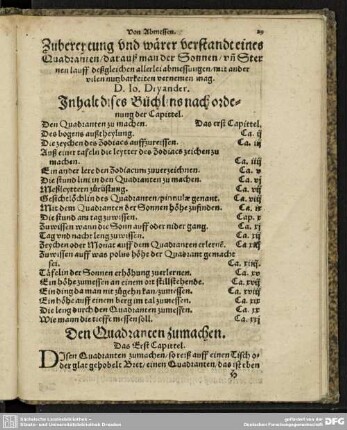 Von Abmessen. 29
Zubereytung vnd warer verstandt eines
Quadranten/darauß man der Sonnen/vñ Ster
nen lauff deßgleichen allerlei abmessungen/mit ander
vilen nutzbarkeiten vernemen mag.
D. Io. Dryander.
Inhalt dises Büchlins nach orde-
nung der Capittel.
Den Quadranten zu machen. Das erst Capittel.
Des bogens außtheylung. Ca. ij
Die zeychen des Zodiacs auffzureissen. Ca. iij
Auß einer tafeln die leytter des Zodiacs zeichen zu
machen. Ca. iiij
Ein ander lere den Zodiacum zuuerzeichnen. Ca. v
Die stundlini in den Quadranten zu machen. Ca. vj
Meßleyttern zůrüstung. Ca. vij
Gesichtlöchlin des Quadranten/pinnulæ genant. Ca. viij
Mit dem Quadranten der Sonnen höhe zufinden. Ca. ix
Die stund am tag zuwissen. Cap. x
Zuwissen wann die Sonn auff oder nider gang. Ca. xj
Tag vnd nacht leng zuwissen. Ca. xij
Zeychen oder Monat auß dem Quadranten erlernē. Ca xiij
Zuwissen auff was polus höhe der Quadrant gemacht
sei. Ca. xiiij.
Täfelin der Sonnen erhöhung zuerlernen. Ca. xv
Ein höhe zumessen an einem ort stillstehende. Ca. xvij
Ein ding da man nit zůgehn kan/zumessen. Ca. xviij
Ein höhe auff einem berg im tal zumessen. Ca. xix
Die leng durch den Quadranten zumessen. Ca. xx
Wie mann die tieffe messen soll. Ca. xxj
Den Quadranten zumachen.
Das Erst Capittel.
Disen Quadranten zumachen/so reiß auff einen Tisch o-
der glat gehobelt Bret/einen Quadranten/das ist eben
H
Sächsische Landesbibliothek –
Staats- und Universitätsbibliothek Dresden
gefördert von der
Deutschen Forschungsgemeinschaft
DFG